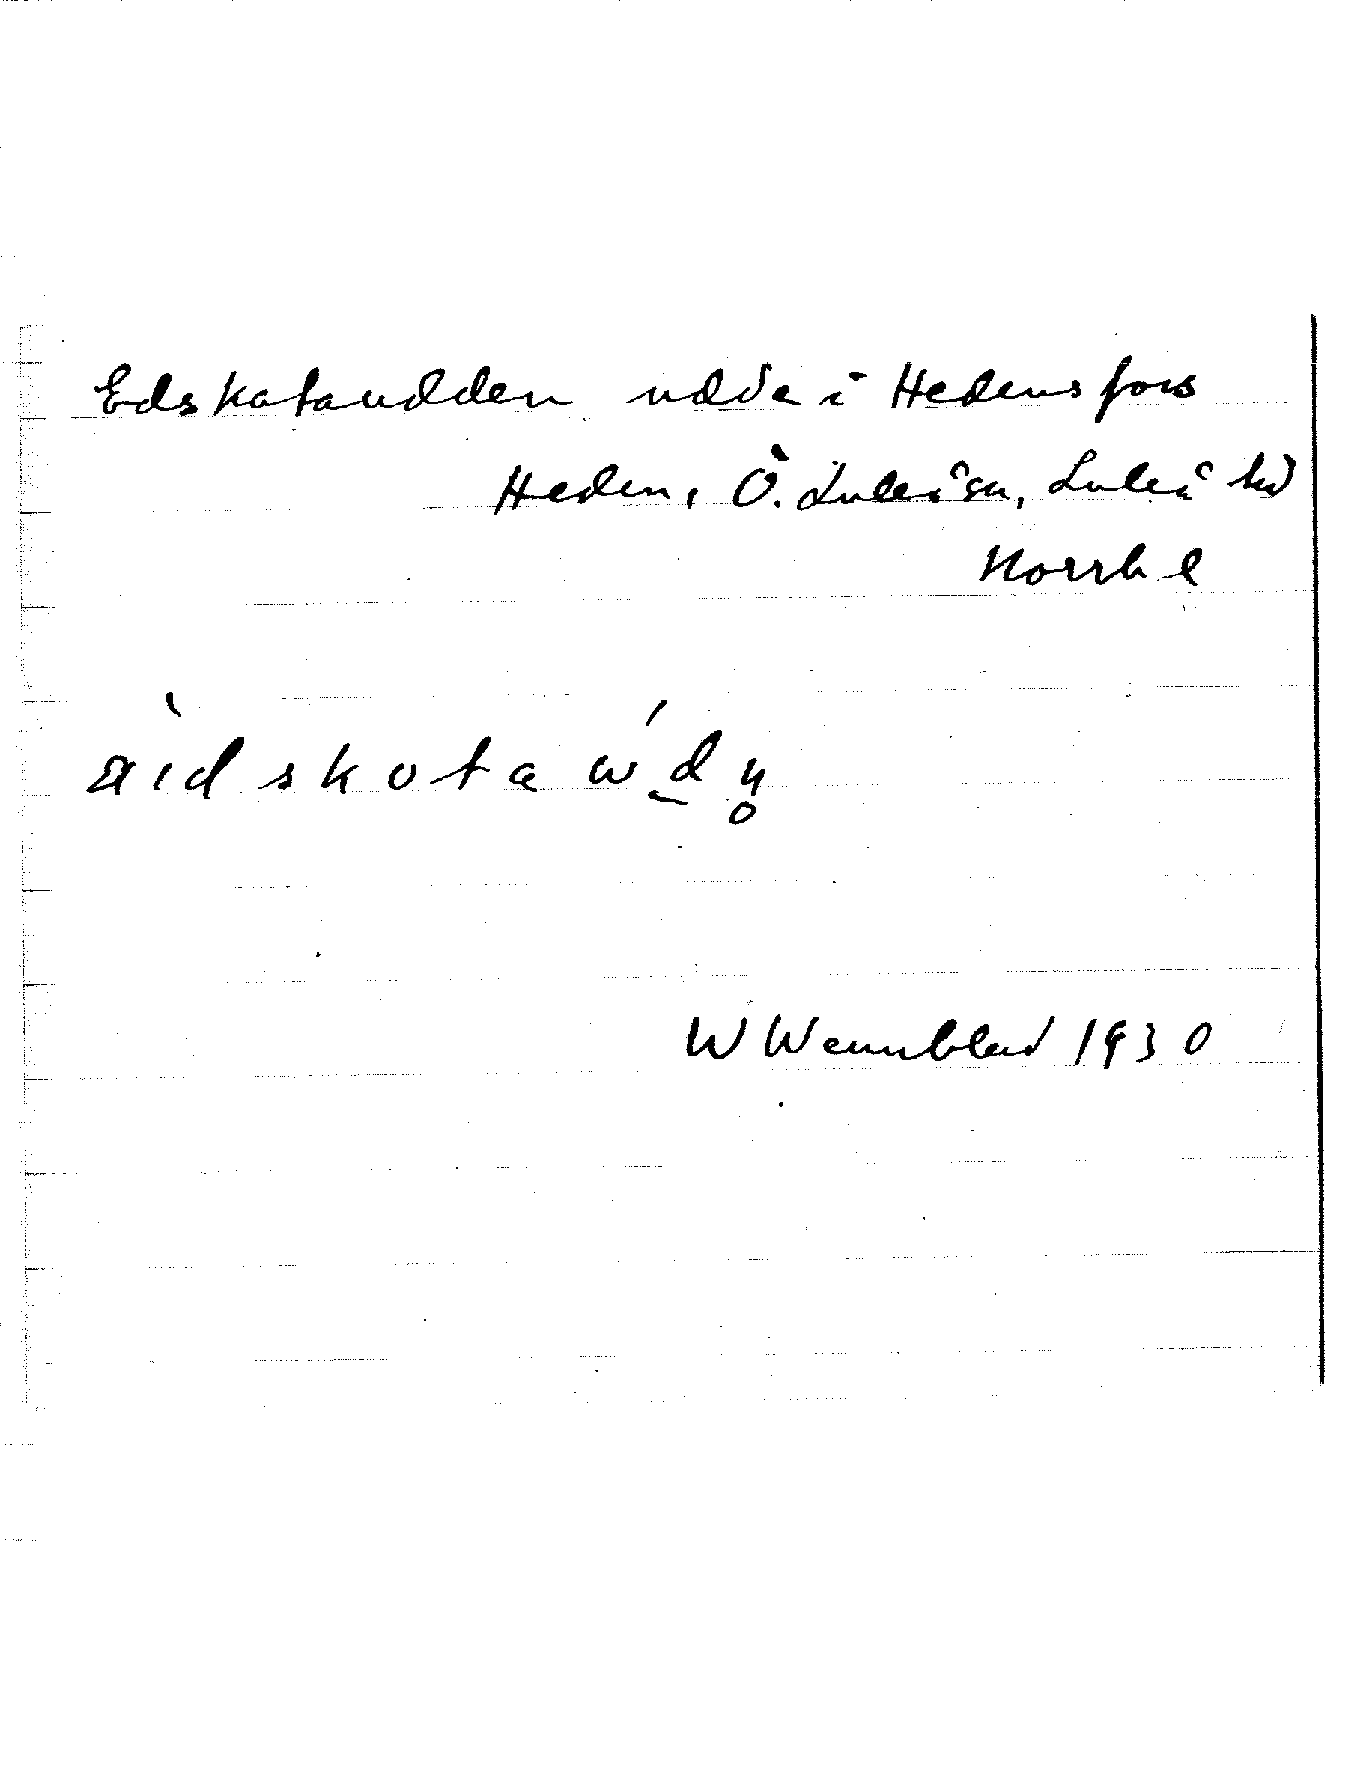 Edskataudden udde i Hedensfors
Heden, Ö. Luleå sn, Luleå hd
Norrb l
àidskotaẃd̲n̥
W Wennblad 1930